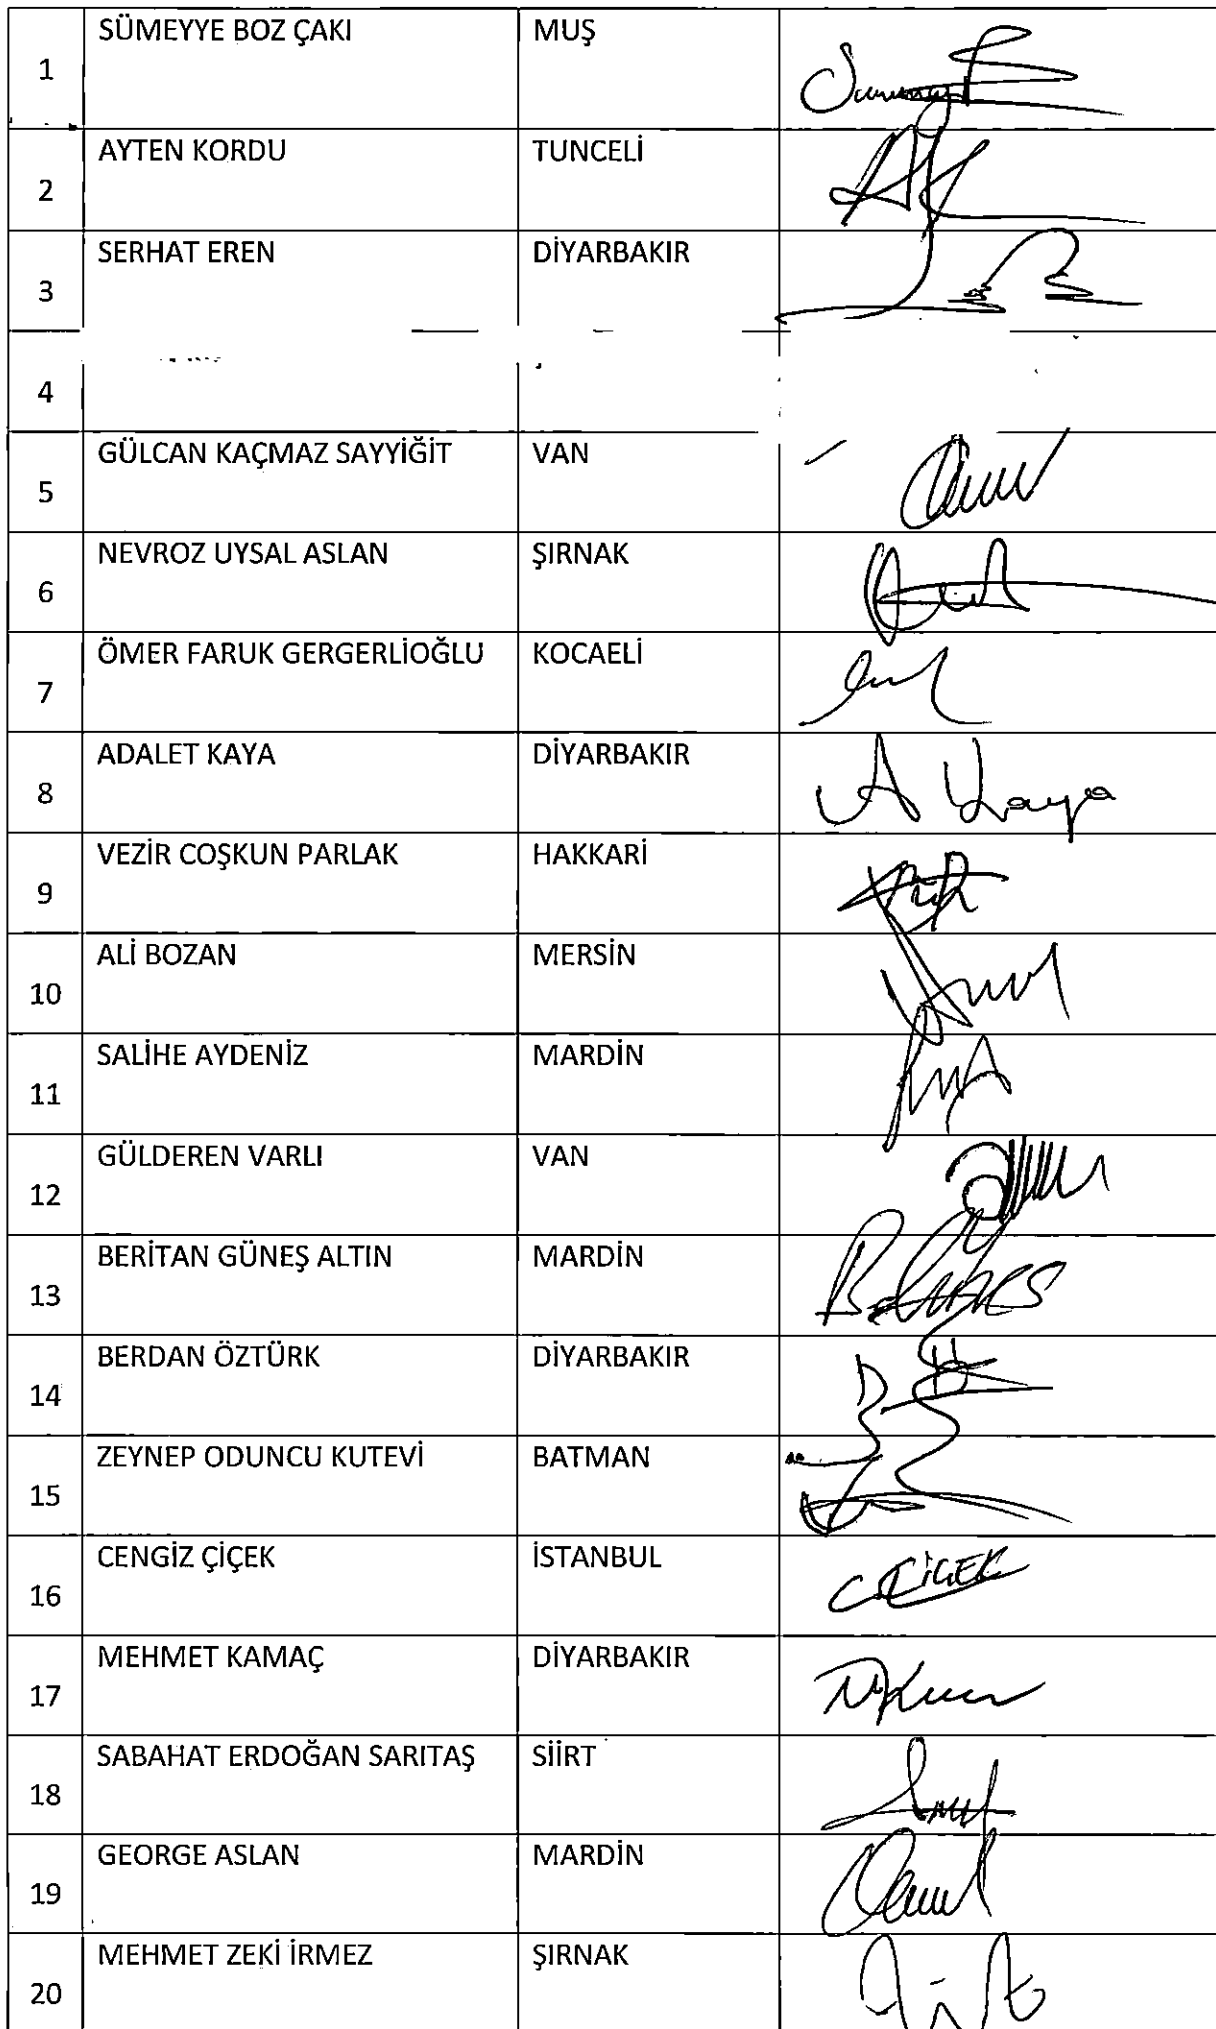 1 SÜMEYYE BOZ ÇAKI MUŞ
2 AYTEN KORDU TUNCELİ
3 SERHAT EREN DİYARBAKIR
4
5 GÜLCAN KAÇMAZ SAYYİĞİT VAN
6 NEVROZ UYSAL ASLAN ŞIRNAK
7 ÖMER FARUK GERGERLİOĞLU KOCAELİ
8 ADALET KAYA DİYARBAKIR A Kaya
9 VEZİR COŞKUN PARLAK HAKKARİ
10 ALİ BOZAN MERSİN
11 SALİHE AYDENİZ MARDİN
12 GÜLDEREN VARLI VAN
13 BERİTAN GÜNEŞ ALTIN MARDİN
14 BERDAN ÖZTÜRK DİYARBAKIR
15 ZEYNEP ODUNCU KUTEVİ BATMAN
16 CENGİZ ÇİÇEK İSTANBUL C ÇİÇEK
17 MEHMET KAMAÇ DİYARBAKIR
18 SABAHAT ERDOĞAN SARITAŞ SİİRT
19 GEORGE ASLAN MARDİN
20 MEHMET ZEKİ İRMEZ ŞIRNAK